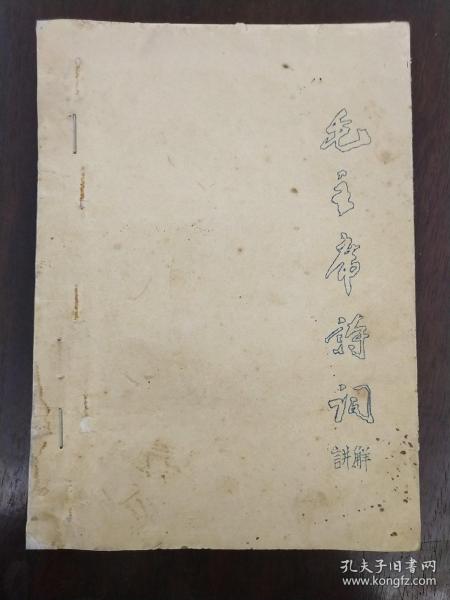 毛主席詩词
講解
孔夫子旧书网
www.kongfz.com